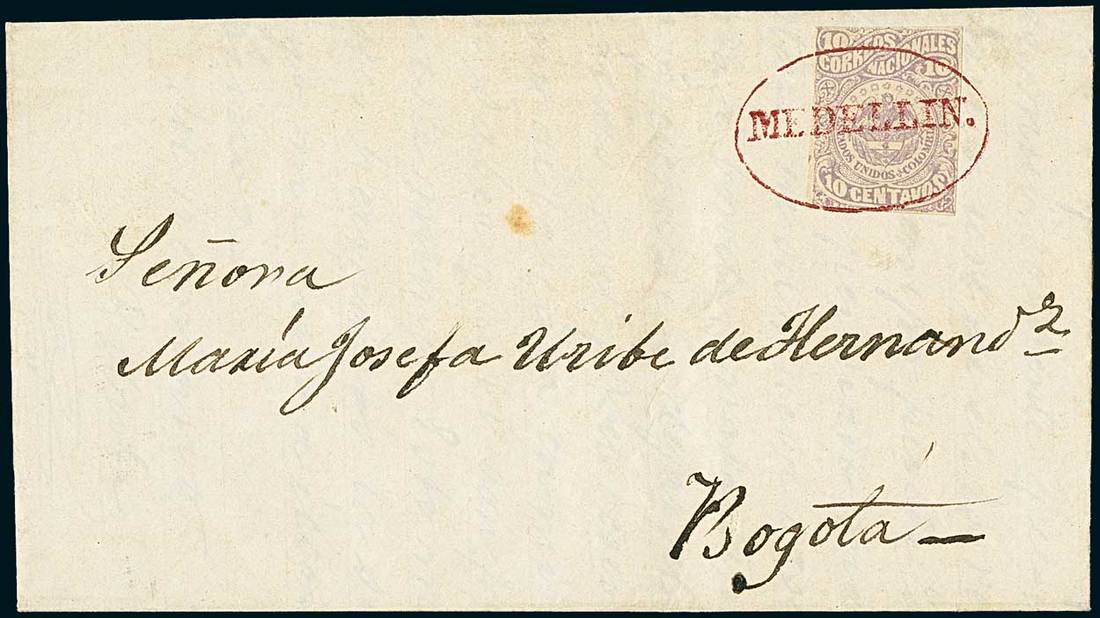 10 CORREOS NACIONALES 10
MEDELLIN.
ESTADOS UNIDOS DE COLOMBIA
10 CENTAVOS
Señora
María Josefa Uribe de Hernandz
Bogotá